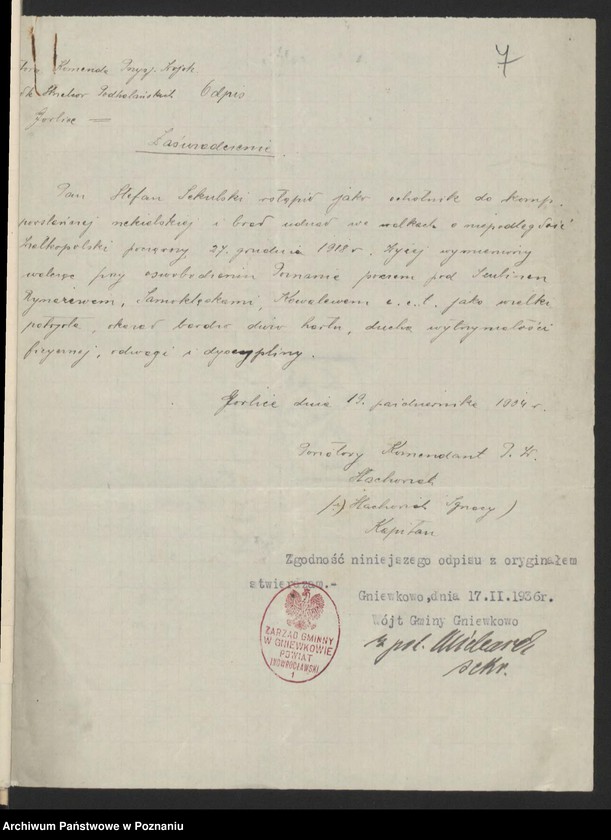 7
Komenda Przysp. Wojsk.
Strzelców Podhalańskich Odpis
Gorlice
Zaświadczenie.
Pan Stefan Sekulski wstąpił jako ochotnik do komp.
powstannej nekielskiej i brał udział we walkach o niepodległość
Wielkopolski począwszy 27. grudnia 1918 r. Wyżej wymieniony
walcząc przy oswobodzeniu Poznania poczem pod Szubinem
Rynarzewem, Samoklęskami, Kowalewem e.c.t. jako wielki
patryota, okazał bardzo dużo hartu, ducha wytrzymałości
fizycznej, odwagi i dyscypliny.
Gorlice dnia 19. października 1934 r.
Powiatowy Komendant P. W.
(-) Ignacy)
Kapitan
Zgodność niniejszego odpisu z oryginałem
stwierdzam.-
Gniewkowo,dnia 17.II.1936r.
Wójt Gminy Gniewkowo
z pol.
sekr.
ZARZĄD GMINNY
W GNIEWKOWIE
POWIAT
INOWROCŁAWSKI
1
Archiwum Państwowe w Poznaniu